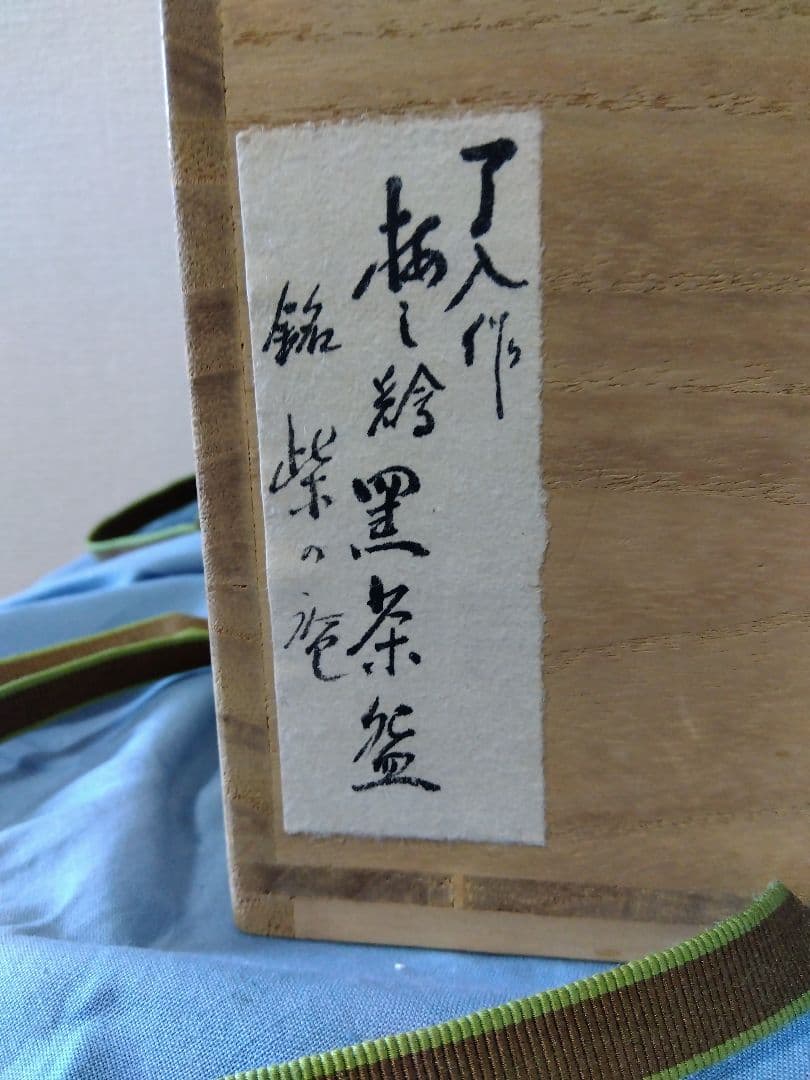 了入作
梅之絵黒茶盌
銘 柴の庵